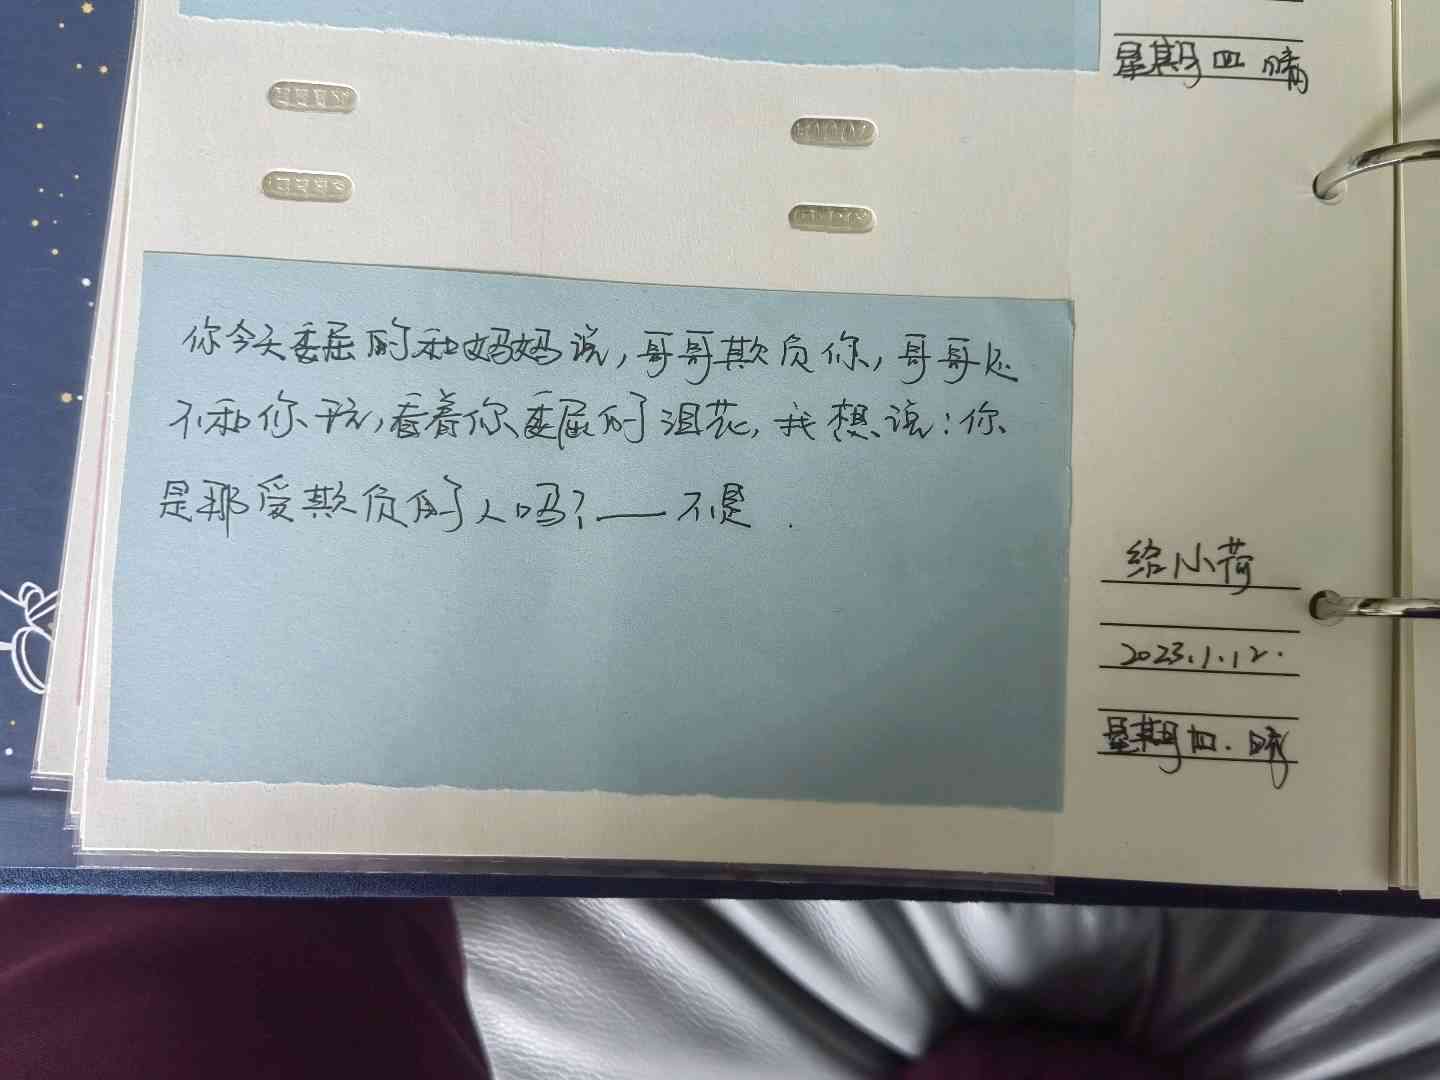 星期四 晴
你今天委屈的和妈妈说,哥哥欺负你,哥哥还
不和你玩,看着你委屈的泪花,我想说:你
是那受欺负的人吗?——不是.
给小荷
2023.1.12.
星期四.晴